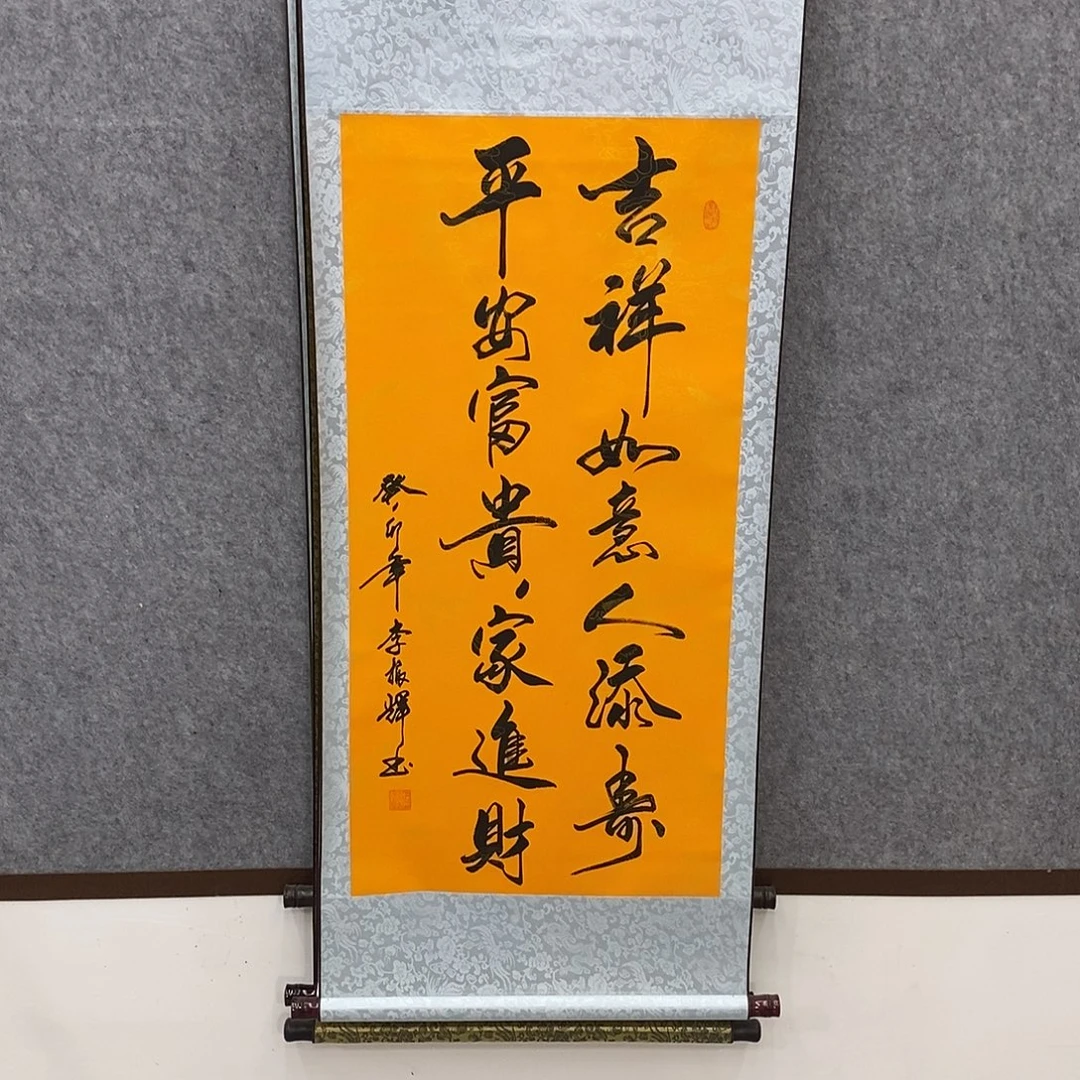 吉祥如意人添壽
平安富貴家進財
癸卯年李振輝书